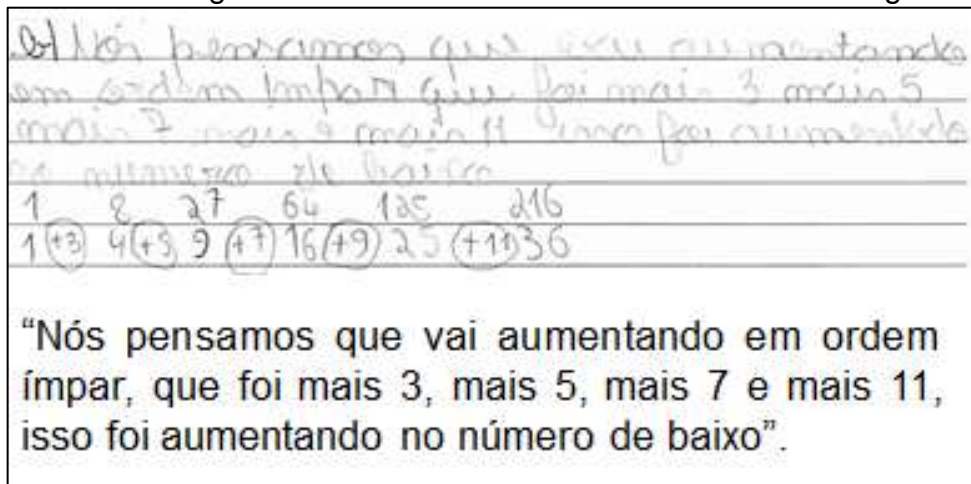 b) Nós pensamos que vai aumentando
em ordem impar que foi mais 3 mais 5
mais 7 mais 9 mais 11 isso foi aumentado
no numero de baixo
1 8 27 64 125 216
1 +3 4 +5 9 +7 16 +9 25 +11 36
“Nós pensamos que vai aumentando em ordem
ímpar, que foi mais 3, mais 5, mais 7 e mais 11,
isso foi aumentando no número de baixo”.